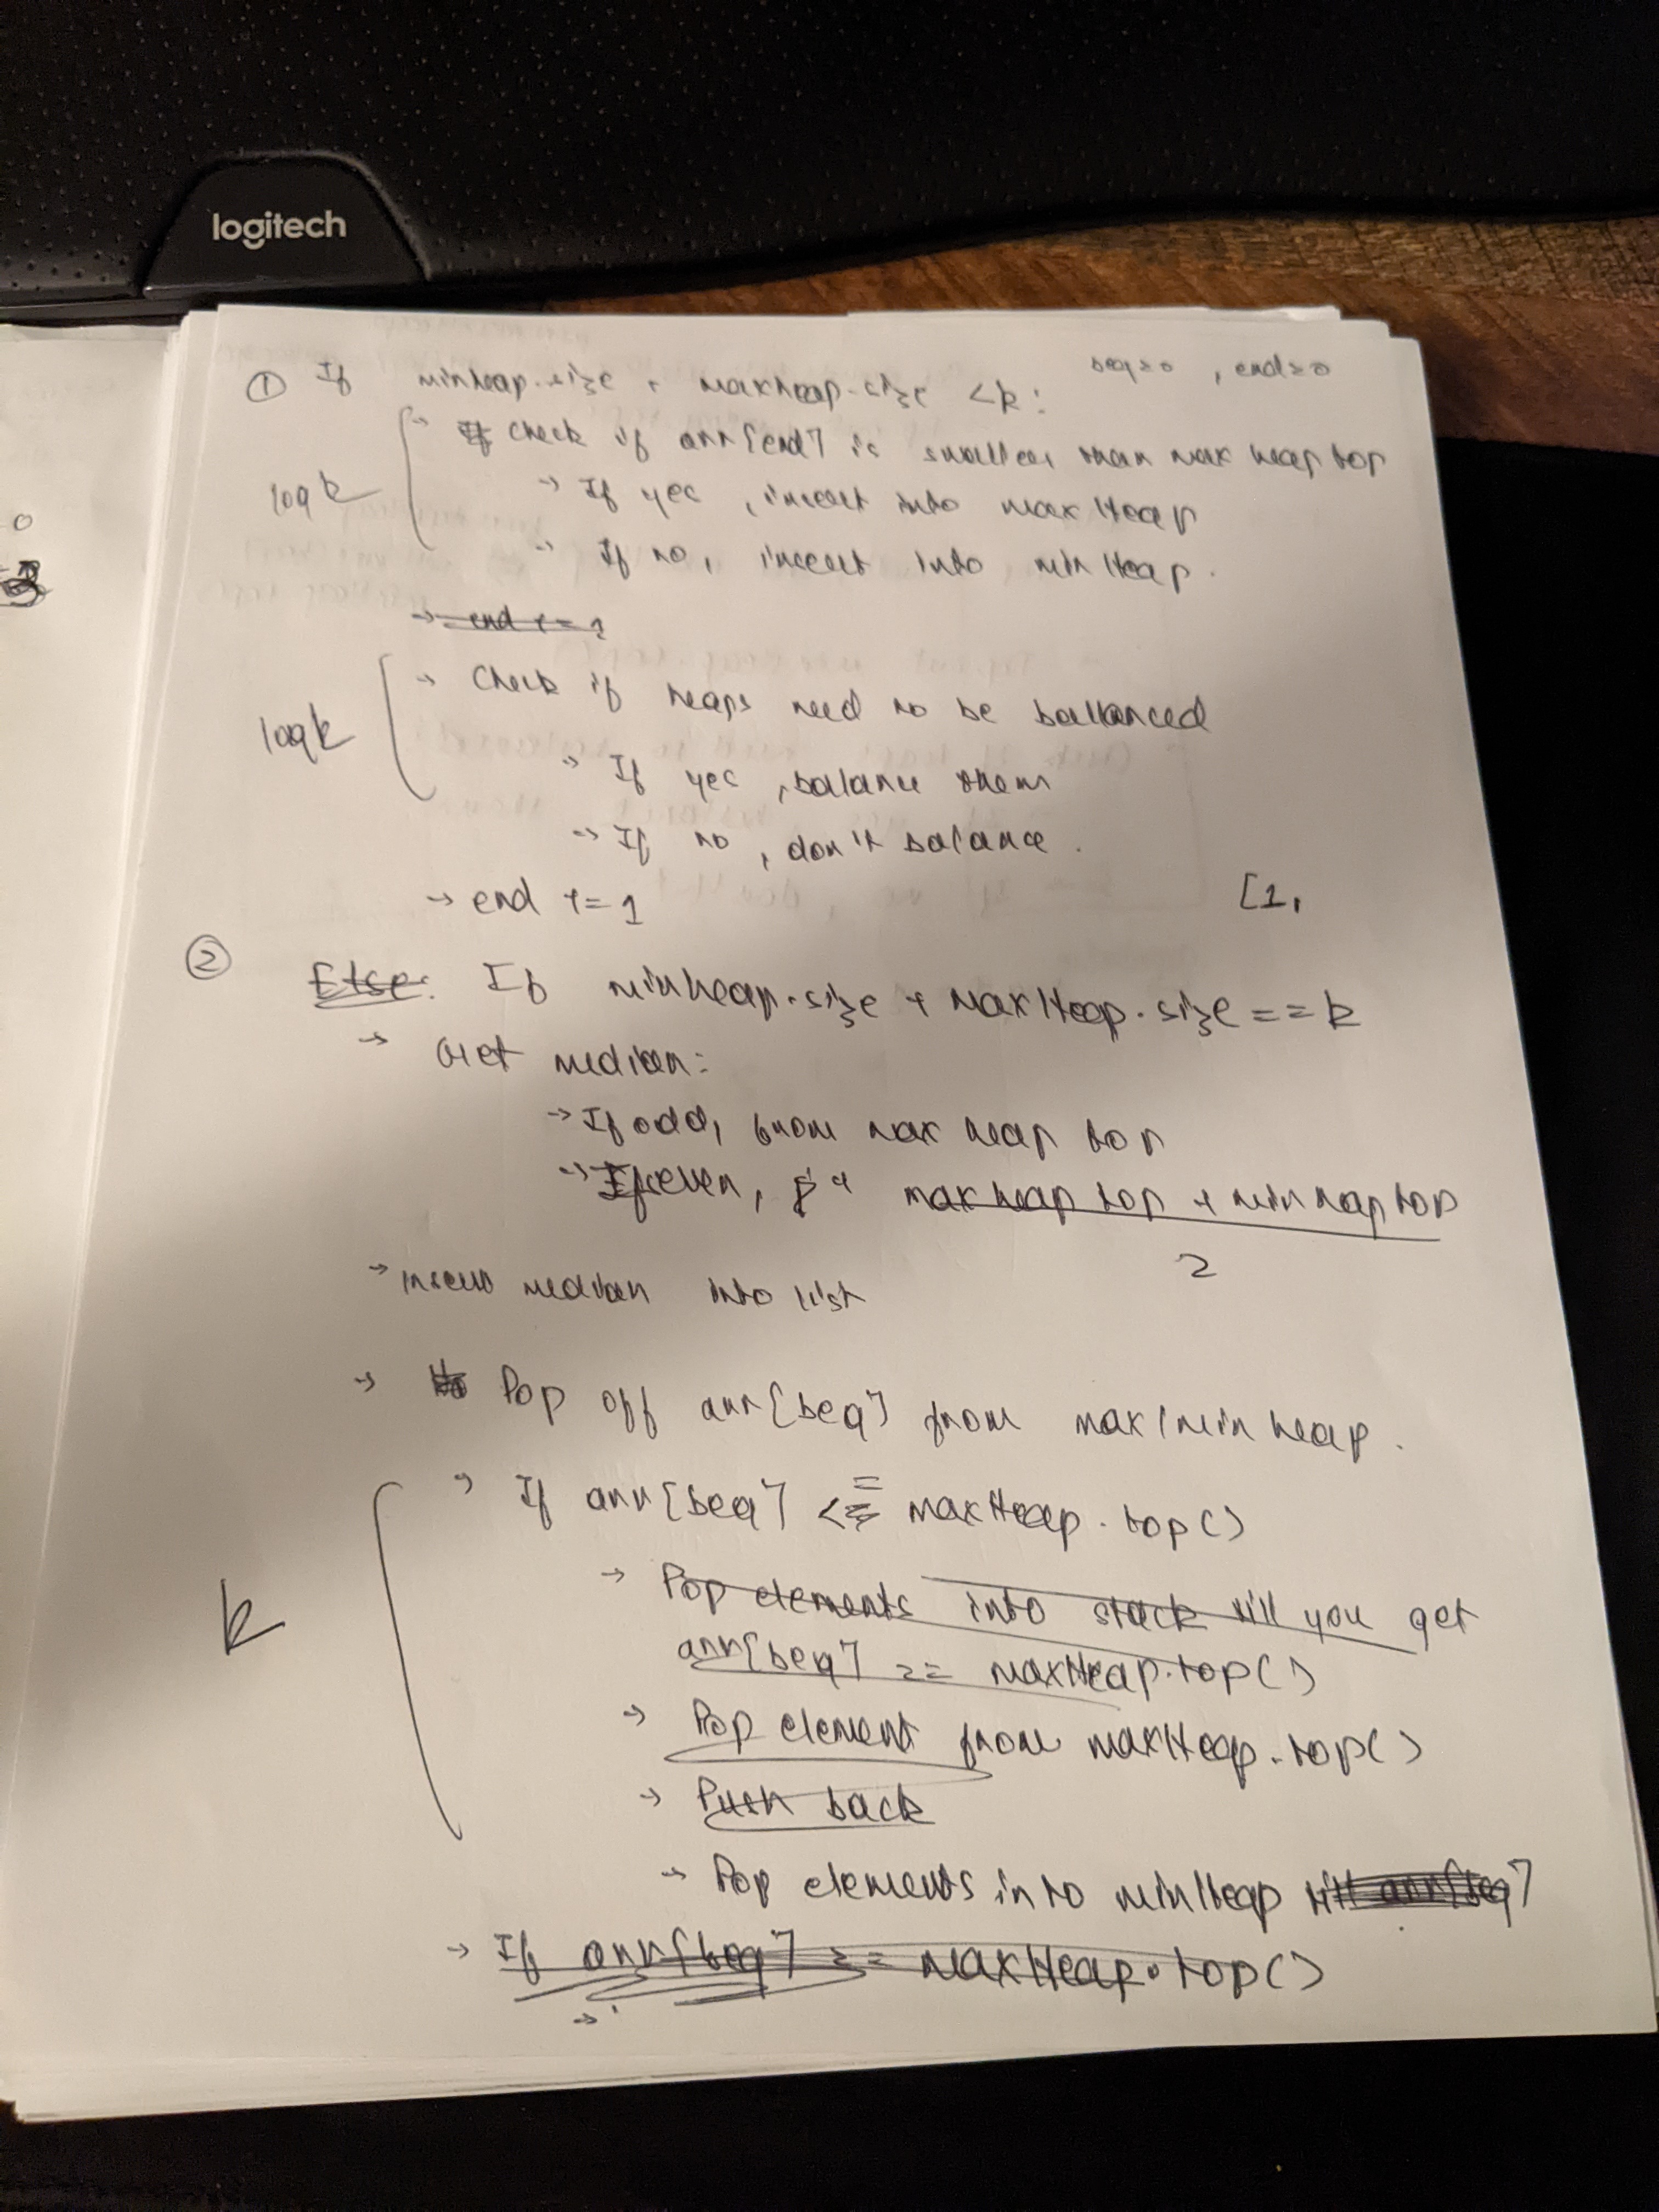 logitech
beg=0, end=0
① If minheap.size + maxheap.size <k:
→ If check if arr[end] is smaller than max heap top
log k
→ If yes, insert into max Heap
→ If no, insert into min Heap.
→ end += 1
→ Check if heaps need to be ballanced
log k
→ If yes, balance them
→ If no, don't balance.
→ end += 1
[1,
② Else: If minheap.size + MaxHeap.size == k
→ Get median:
→ If odd, from max heap top
→ If even, max heap top + min heap top
2
→ insert median into list
→ Pop off arr[beg] from max/min heap.
→ If arr[beg] <= maxHeap.top()
→ Pop elements into stack till you get
arr[beg] == maxHeap.top()
k
→ Pop element from maxHeap.top()
→ Push back
→ Pop elements into minHeap till arr[beg]
→ If arr[beg] == maxHeap.top()
→
0